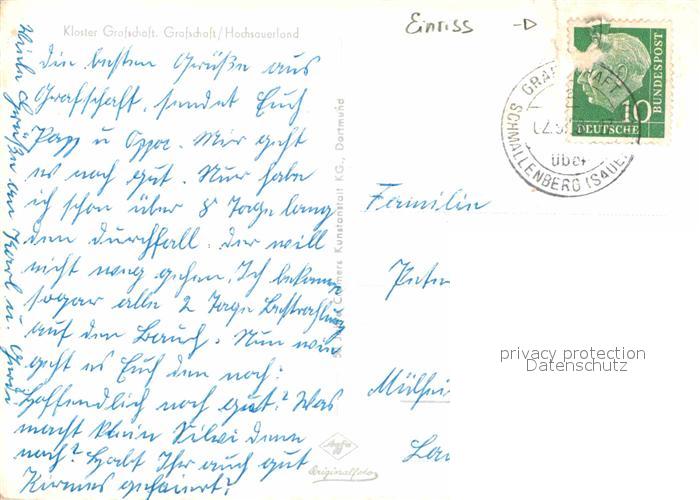 Kloster Grafschaft. Grafschaft/Hochsauerland
Einriss
Die besten Grüße aus
Grafschaft, sendet Euch
Papp u Oppa. Mir geht
es noch gut. Nur habe
ich schon über 8 Tage lang
den Durchfall. der will
nicht weg gehen. Ich bekomme
sogar alle 2 Tage Bestrahlung
auf den Bauch. Nun wie
geht es Euch den noch?
Hoffendlich noch gut? Was
macht klein Silvi denn
noch? Habt Ihr auch gut
Kirmes gefeiert?
Viele Grüße an Karl u.
Cramers Kunstanstalt KG., Dortmund
Agfa
Originalfoto
Familie
Mülhei
GRAFSCHAFT
über
SCHMALLENBERG (SAUE
10
DEUTSCHE
BUNDESPOST
privacy protection
Datenschutz